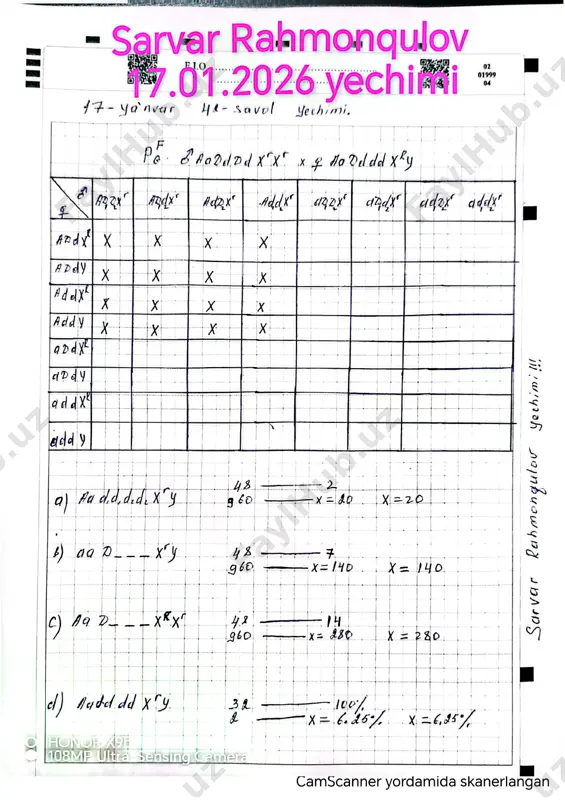 Sarvar Rahmonqulov
F.I.O
17.01.2026 yechimi
02
01999
04
17-yanvar 42-savol yechimi.
♂ AaDdDd XʳXʳ x ♀ AaDddd XᴿY
♂
♀
ADdXᴿ X X X X
ADdY X X X X
AddXᴿ X X X X
AddY X X X X
aDdXᴿ
aDdY
addXᴿ
addY
a) Aa d₁d₁d₂d₂ XʳY 48 — 2
960 — x=20 X=20
b) aa D _ _ _ XʳY 48 — 7
960 — x=140 X=140
c) Aa D _ _ _ XᴿXʳ 48 — 14
960 — x=280 X=280
d) Aadd dd XʳY 32 — 100%
2 — x=6.25% X=6.25%
Sarvar Rahmonqulov yechimi!!!
FaylHub.uz
HONOR X9b
108MP Ultra Sensing Camera
CamScanner yordamida skanerlangan